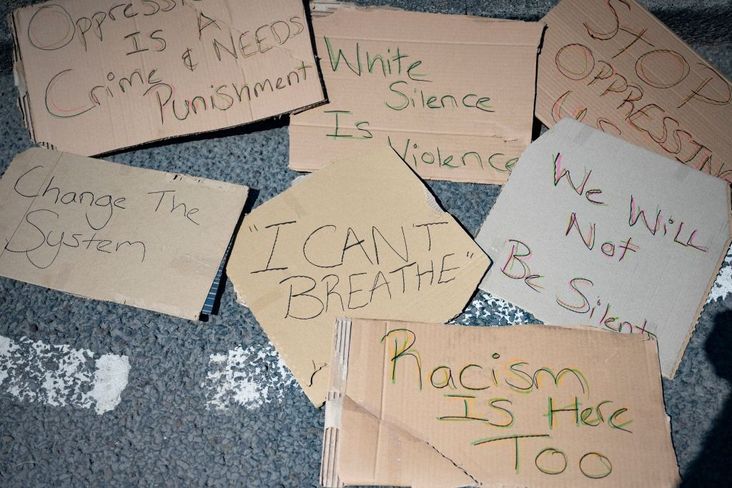 Oppression
Is A
Crime & Needs
Punishment
White
Silence
Is Violence
STOP
OPPRESSING
US
Change The
System
"I CANT
BREATHE"
We Will
Not
Be Silent
Racism
Is Here
Too